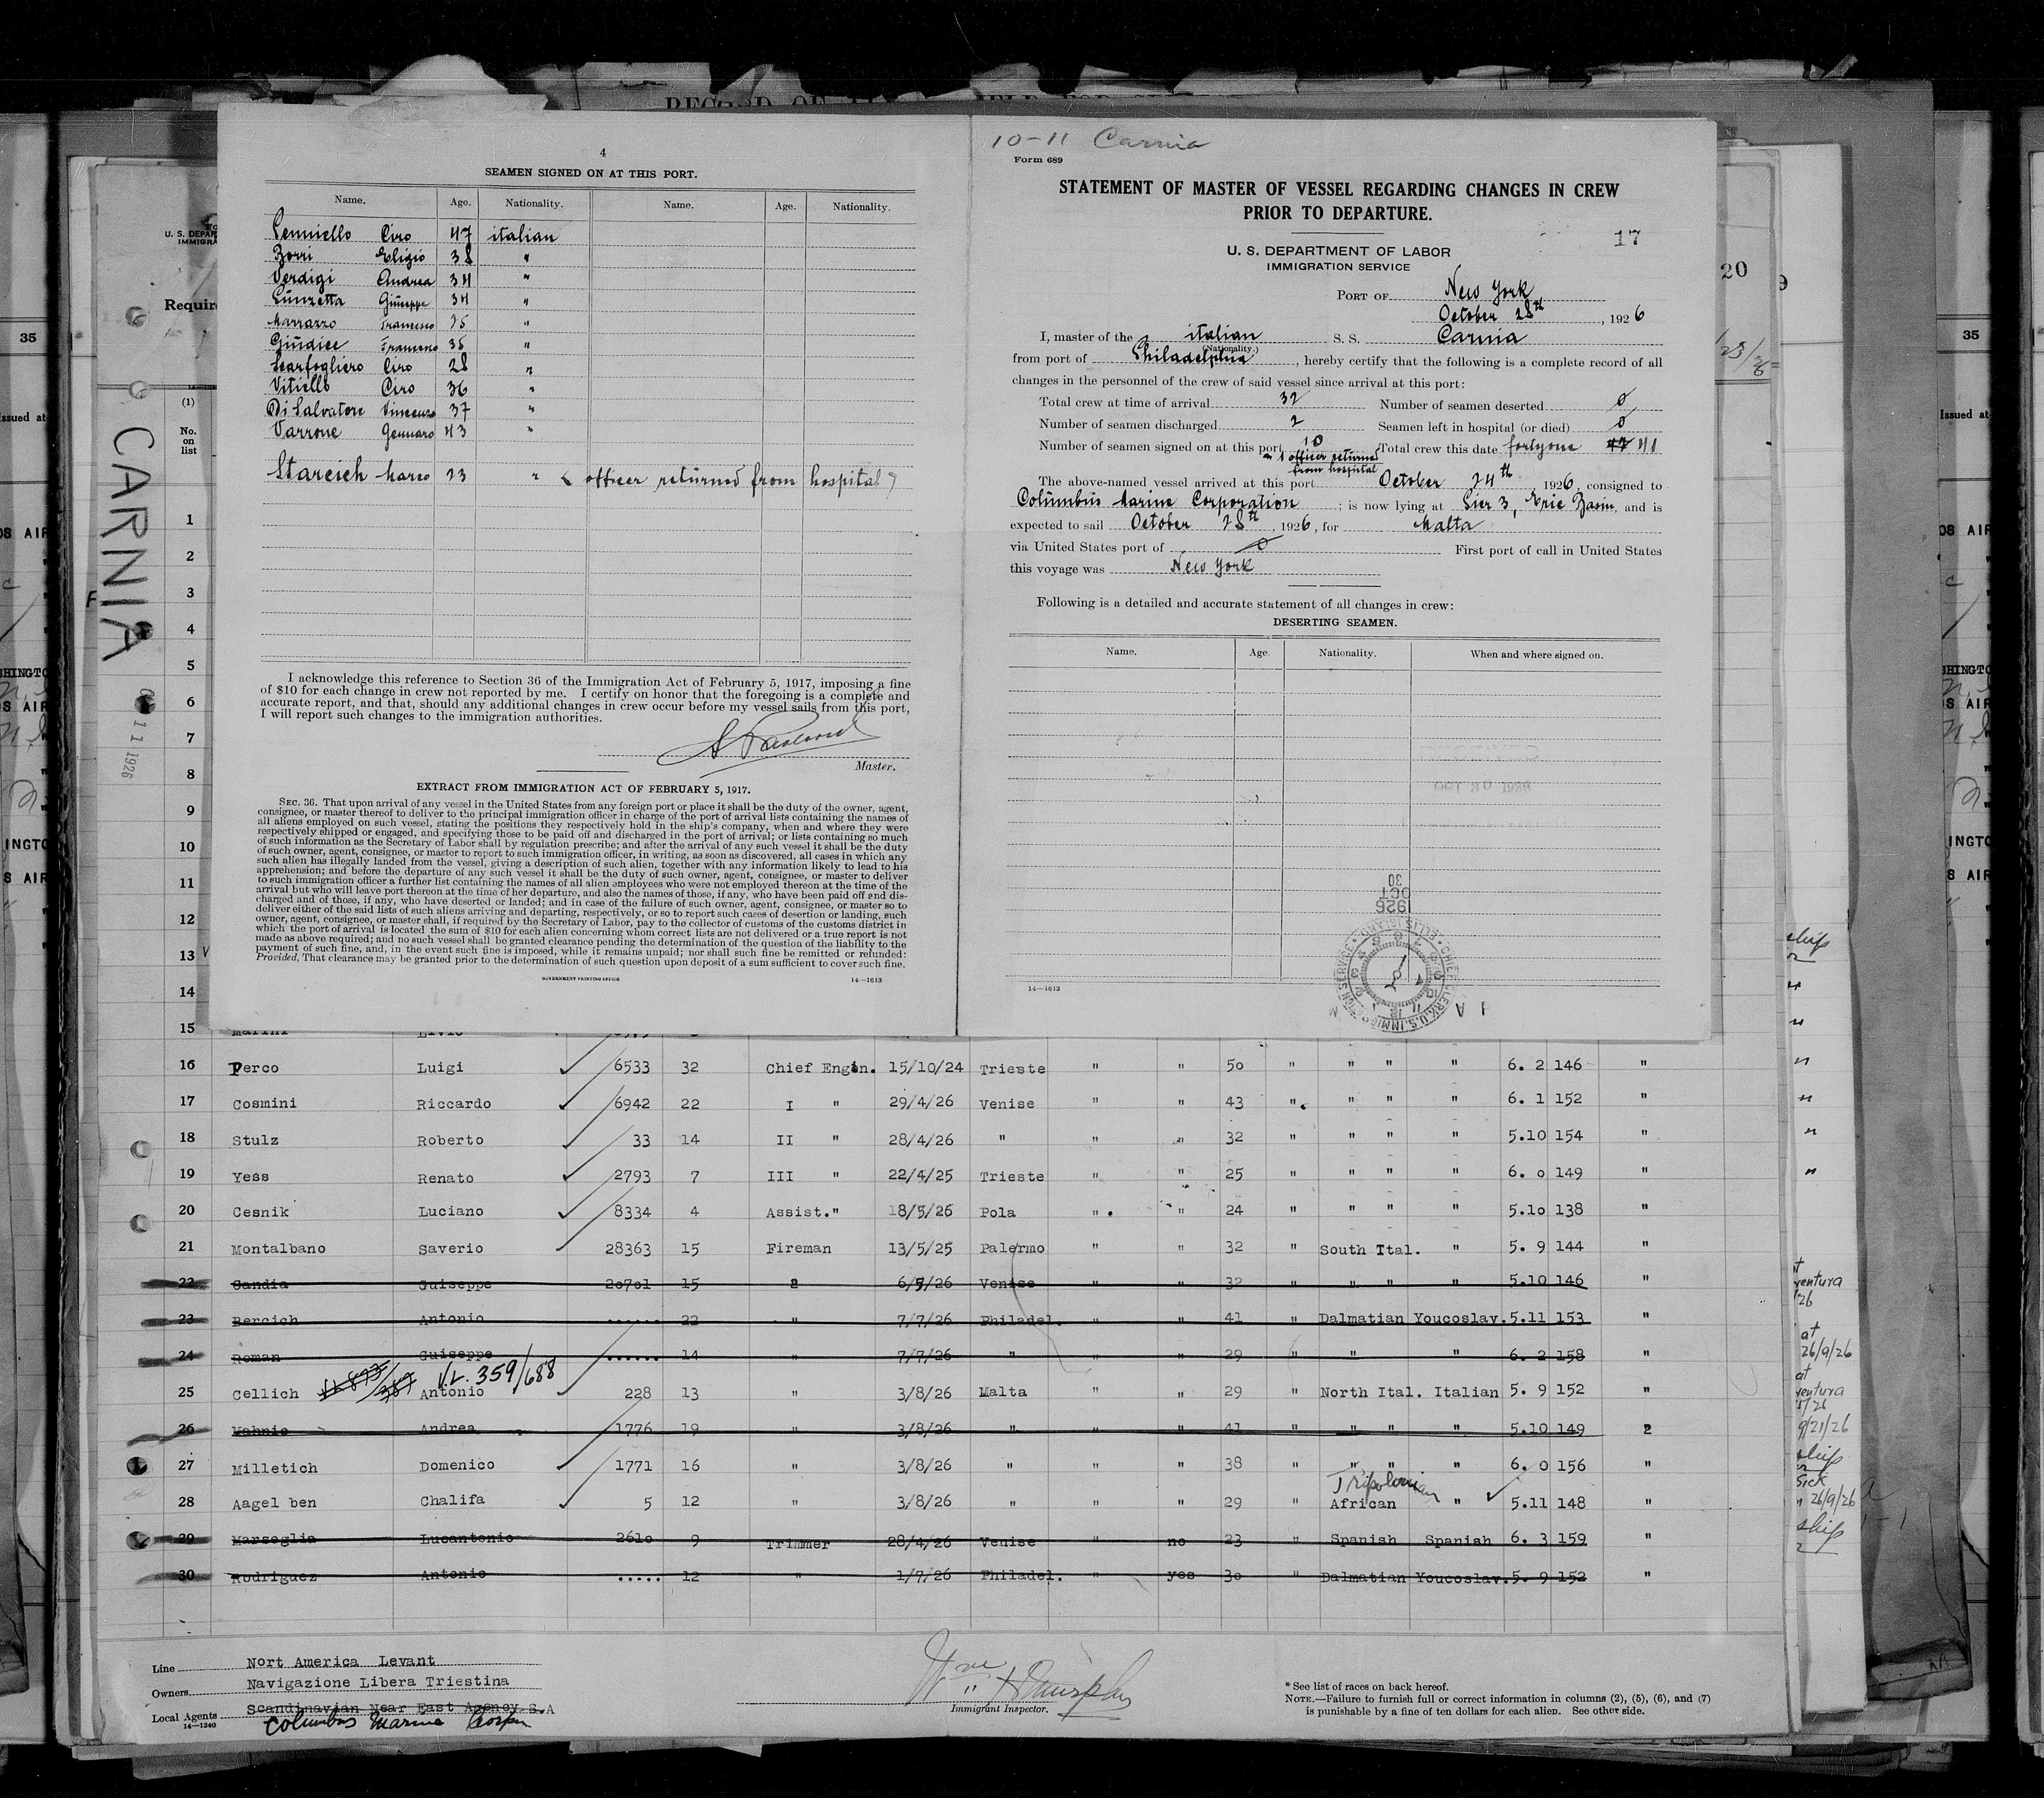 RECORD OF
4
SEAMEN SIGNED ON AT THIS PORT.
Name. Age. Nationality. Name. Age. Nationality.
Penniello Ciro 47 italian
Zorri Eligio 38 "
Verdigi Andrea 34 "
Giuseppe 34 "
Marrazzo Francesco 25 "
Giudice Francesco 35 "
Scarfogliero Ciro 28 "
Vitiello Ciro 36 "
Di Salvatore Vincenzo 37 "
Varrone Gennaro 43 "
Starcich Marco 23 " officer returned from hospital
I acknowledge this reference to Section 36 of the Immigration Act of February 5, 1917, imposing a fine
of $10 for each change in crew not reported by me. I certify on honor that the foregoing is a complete and
accurate report, and that, should any additional changes in crew occur before my vessel sails from this port,
I will report such changes to the immigration authorities.
Master.
EXTRACT FROM IMMIGRATION ACT OF FEBRUARY 5, 1917.
SEC. 36. That upon arrival of any vessel in the United States from any foreign port or place it shall be the duty of the owner, agent,
consignee, or master thereof to deliver to the principal immigration officer in charge of the port of arrival lists containing the names of
all aliens employed on such vessel, stating the positions they respectively hold in the ship's company, when and where they were
respectively shipped or engaged, and specifying those to be paid off and discharged in the port of arrival; or lists containing so much
of such information as the Secretary of Labor shall by regulation prescribe; and after the arrival of any such vessel it shall be the duty
of such owner, agent, consignee, or master to report to such immigration officer, in writing, as soon as discovered, all cases in which any
such alien has illegally landed from the vessel, giving a description of such alien, together with any information likely to lead to his
apprehension; and before the departure of any such vessel it shall be the duty of such owner, agent, consignee, or master to deliver
to such immigration officer a further list containing the names of all alien employees who were not employed thereon at the time of the
arrival but who will leave port thereon at the time of her departure, and also the names of those, if any, who have been paid off and dis-
charged and of those, if any, who have deserted or landed; and in case of the failure of such owner, agent, consignee, or master so to
deliver either of the said lists of such aliens arriving and departing, respectively, or so to report such cases of desertion or landing, such
owner, agent, consignee, or master shall, if required by the Secretary of Labor, pay to the collector of customs of the customs district in
which the port of arrival is located the sum of $10 for each alien concerning whom correct lists are not delivered or a true report is not
made as above required; and no such vessel shall be granted clearance pending the determination of the question of the liability to the
payment of such fine, and, in the event such fine is imposed, while it remains unpaid; nor shall such fine be remitted or refunded:
Provided, That clearance may be granted prior to the determination of such question upon deposit of a sum sufficient to cover such fine.
GOVERNMENT PRINTING OFFICE 14—1613
10-11 Carnia
Form 689
STATEMENT OF MASTER OF VESSEL REGARDING CHANGES IN CREW
PRIOR TO DEPARTURE.
17
U. S. DEPARTMENT OF LABOR
IMMIGRATION SERVICE
PORT OF New York
October 28th, 1926
I, master of the italian S. S. Carnia
(Nationality.)
from port of Philadelphia, hereby certify that the following is a complete record of all
changes in the personnel of the crew of said vessel since arrival at this port:
Total crew at time of arrival 32 Number of seamen deserted 0
Number of seamen discharged 2 Seamen left in hospital (or died) 0
Number of seamen signed on at this port 10 Total crew this date fortyone 42 41
1 officer returned
from hospital
The above-named vessel arrived at this port October 24th 1926, consigned to
Columbus Marine Corporation; is now lying at Pier 3, Erie Basin, and is
expected to sail October 28th, 1926, for Malta
via United States port of 0 First port of call in United States
this voyage was New York
Following is a detailed and accurate statement of all changes in crew:
DESERTING SEAMEN.
Name. Age. Nationality. When and where signed on.
OCT 30 1926
CHIEF CLERK, U. S. IMMIGRATION SERVICE ELLIS ISLAND
14—1613
U. S. DEPAR
IMMIGRA
Requir
20
35
Issued at
(1)
No.
on
list
CARNIA
11 1926
1
2
3
4
5
6
7
8
9
10
11
12
13
14
15 Marini Livio
16 Perco Luigi 6533 32 Chief Engin. 15/10/24 Trieste " " 50 " " " " 6. 2 146 "
17 Cosmini Riccardo 6942 22 I " 29/4/26 Venise " " 43 " " " " 6. 1 152 "
18 Stulz Roberto 33 14 II " 28/4/26 " " " 32 " " " " 5.10 154 "
19 Yess Renato 2793 7 III " 22/4/25 Trieste " " 25 " " " " 6. 0 149 "
20 Cesnik Luciano 8334 4 Assist." 18/5/26 Pola " " 24 " " " " 5.10 138 "
21 Montalbano Saverio 28363 15 Fireman 13/5/25 Palermo " " 32 " South Ital. " 5. 9 144 "
22 Candia Guiseppe 20701 15 " 6/5/26 Venise " " 32 " " " " 5.10 146 "
23 Bercich Antonio ...... 22 " 7/7/26 Philadel. " " 41 " Dalmatian Youcoslav. 5.11 153 "
24 Roman Guiseppe ...... 14 " 7/7/26 " " " 29 " " " 6. 2 158 "
V.L. 359/688
25 Cellich Antonio 228 13 " 3/8/26 Malta " " 29 " North Ital. Italian 5. 9 152 "
26 Andrea 1776 19 " 3/8/26 " " " 41 " " " " 5.10 149 2
27 Milletich Domenico 1771 16 " 3/8/26 " " " 38 " " " " 6. 0 156 "
Tripolonian
28 Aagel ben Chalifa 5 12 " 3/8/26 " " " 29 " African " 5.11 148 "
29 Marseglia Lucantonio 2610 9 Trimmer 28/4/26 Venise " no 23 " Spanish Spanish 6. 3 159 "
30 Rodriguez Antonio ..... 12 " 1/7/26 Philadel. " yes 30 " Dalmatian Youcoslav. 5. 9 152 "
Line Nort America Levant
Owners Navigazione Libera Triestina
Local Agents Scandinavian Near East Agency S.A
14—1240 Columbus Marine Corpn
Wm H Murphy
Immigrant Inspector.
* See list of races on back hereof.
NOTE.—Failure to furnish full or correct information in columns (2), (5), (6), and (7)
is punishable by a fine of ten dollars for each alien. See other side.
35
Issued at